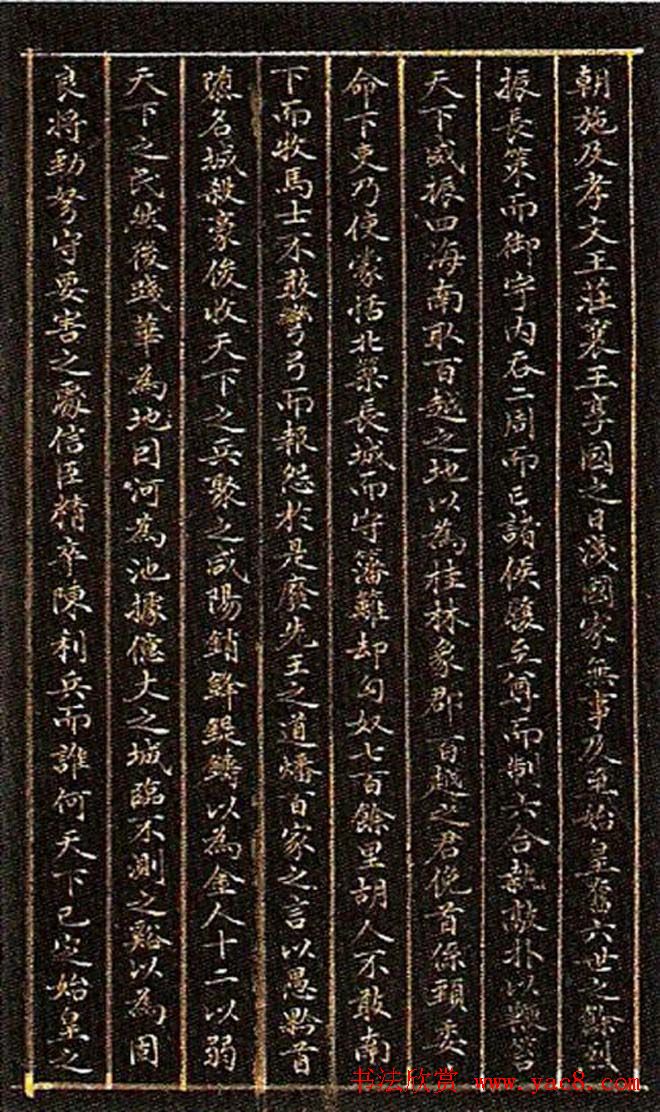 朝施及孝文王莊襄王享國之日淺國家無事及至始皇奮六世之餘烈
振長策而御宇内吞二周而亡諸侯履至尊而制六合執敲朴以鞭笞
天下威振四海南取百越之地以為桂林象郡百越之君俛首係頸委
命下吏乃使蒙恬北築長城而守籓籬却匈奴七百餘里胡人不敢南
下而牧馬士不敢彎弓而報怨於是廢先王之道燔百家之言以愚黔首
隳名城殺豪俊收天下之兵聚之咸陽銷鋒鍉鑄以為金人十二以弱
天下之民然後踐華為地因河為池據億丈之城臨不測之谿以為固
良將勁弩守要害之處信臣精卒陳利兵而誰何天下已定始皇之
书法欣赏 www.yac8.com